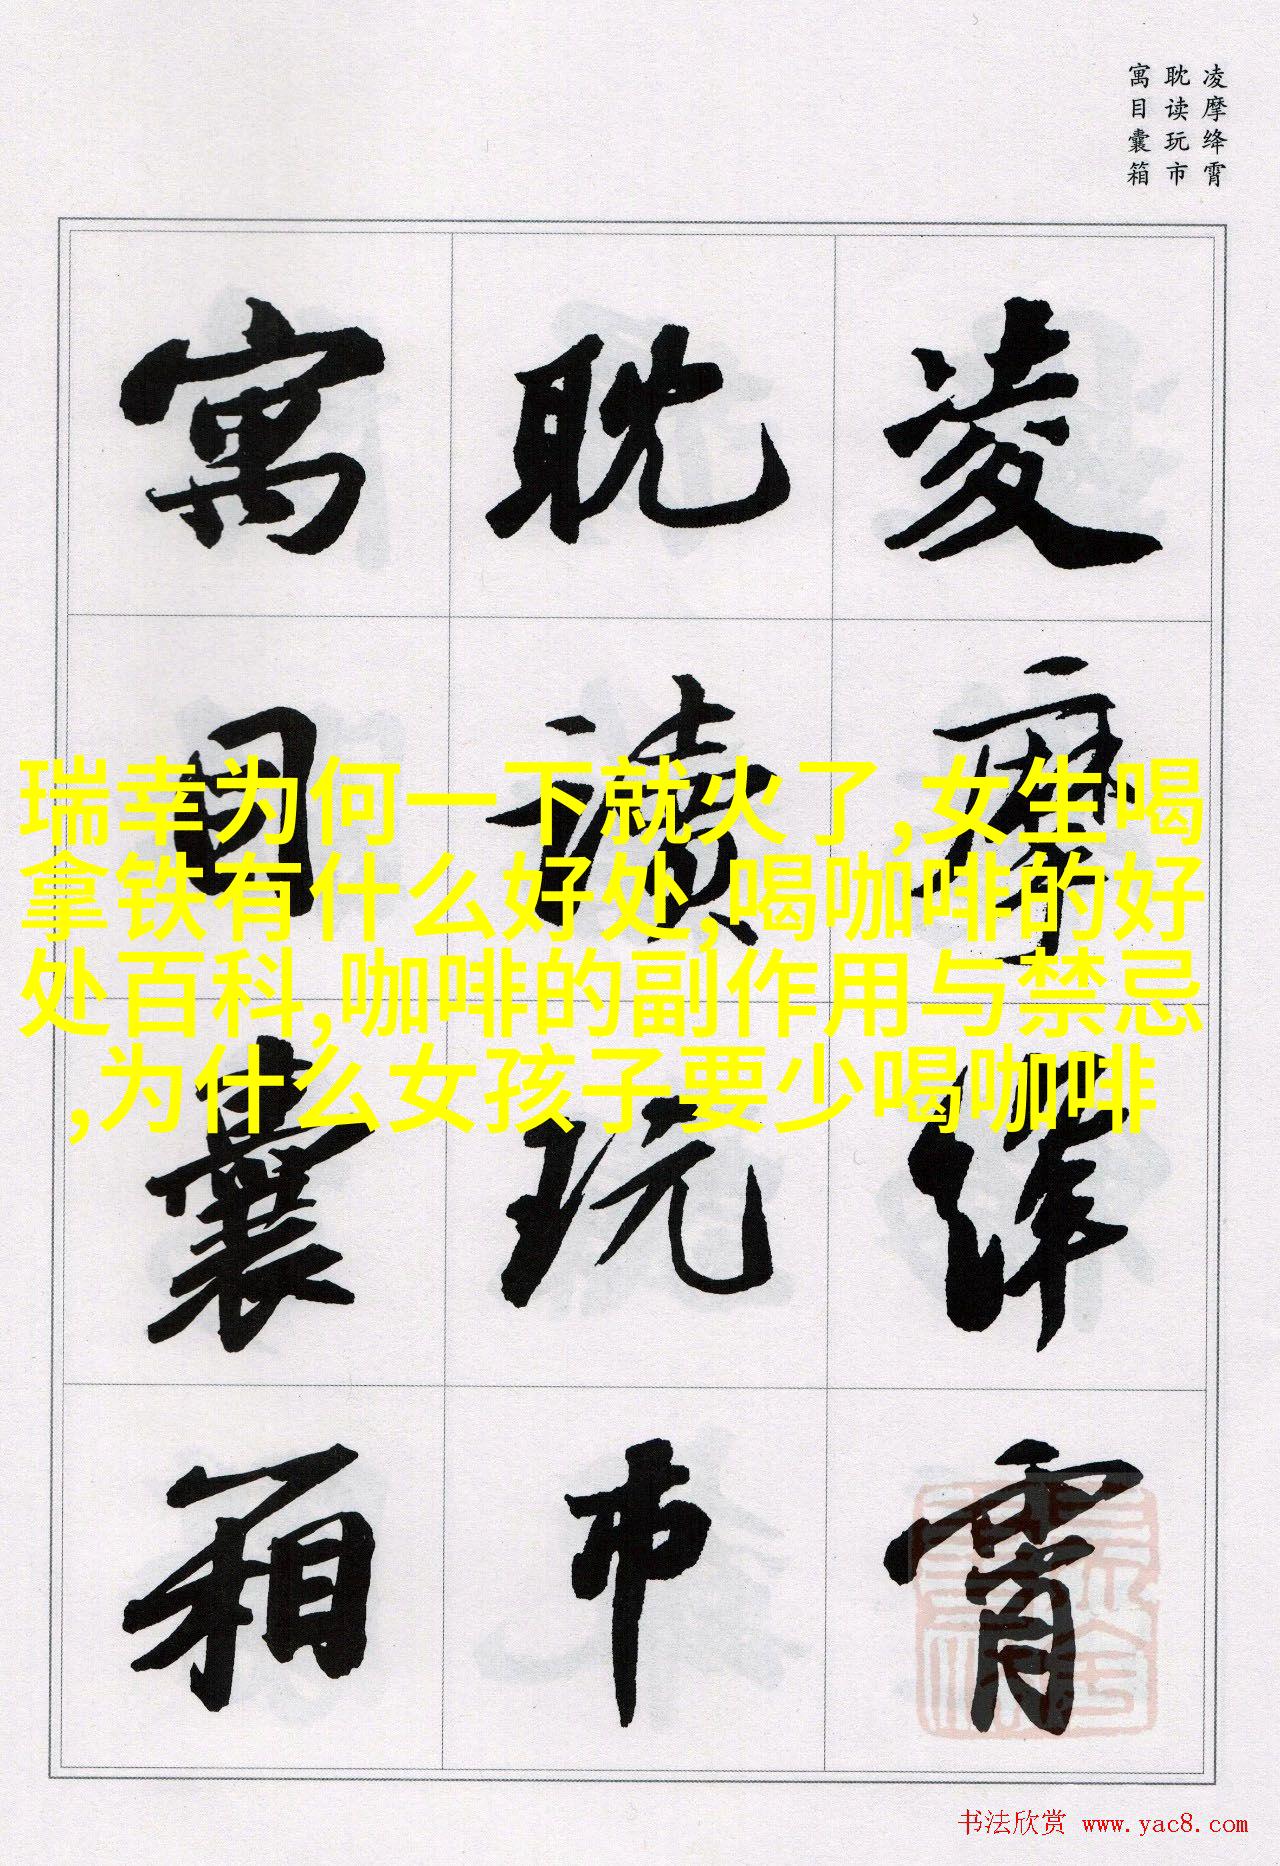 凌摩绛霄
耽读玩市
寓目囊箱
凌摩绛霄
耽读玩市
寓目囊箱
瑞幸为何一下就火了,女生喝
拿铁有什么好处,喝咖啡的好
处百科,咖啡的副作用与禁忌
,为什么女孩子要少喝咖啡
书法欣赏 www.yac8.com